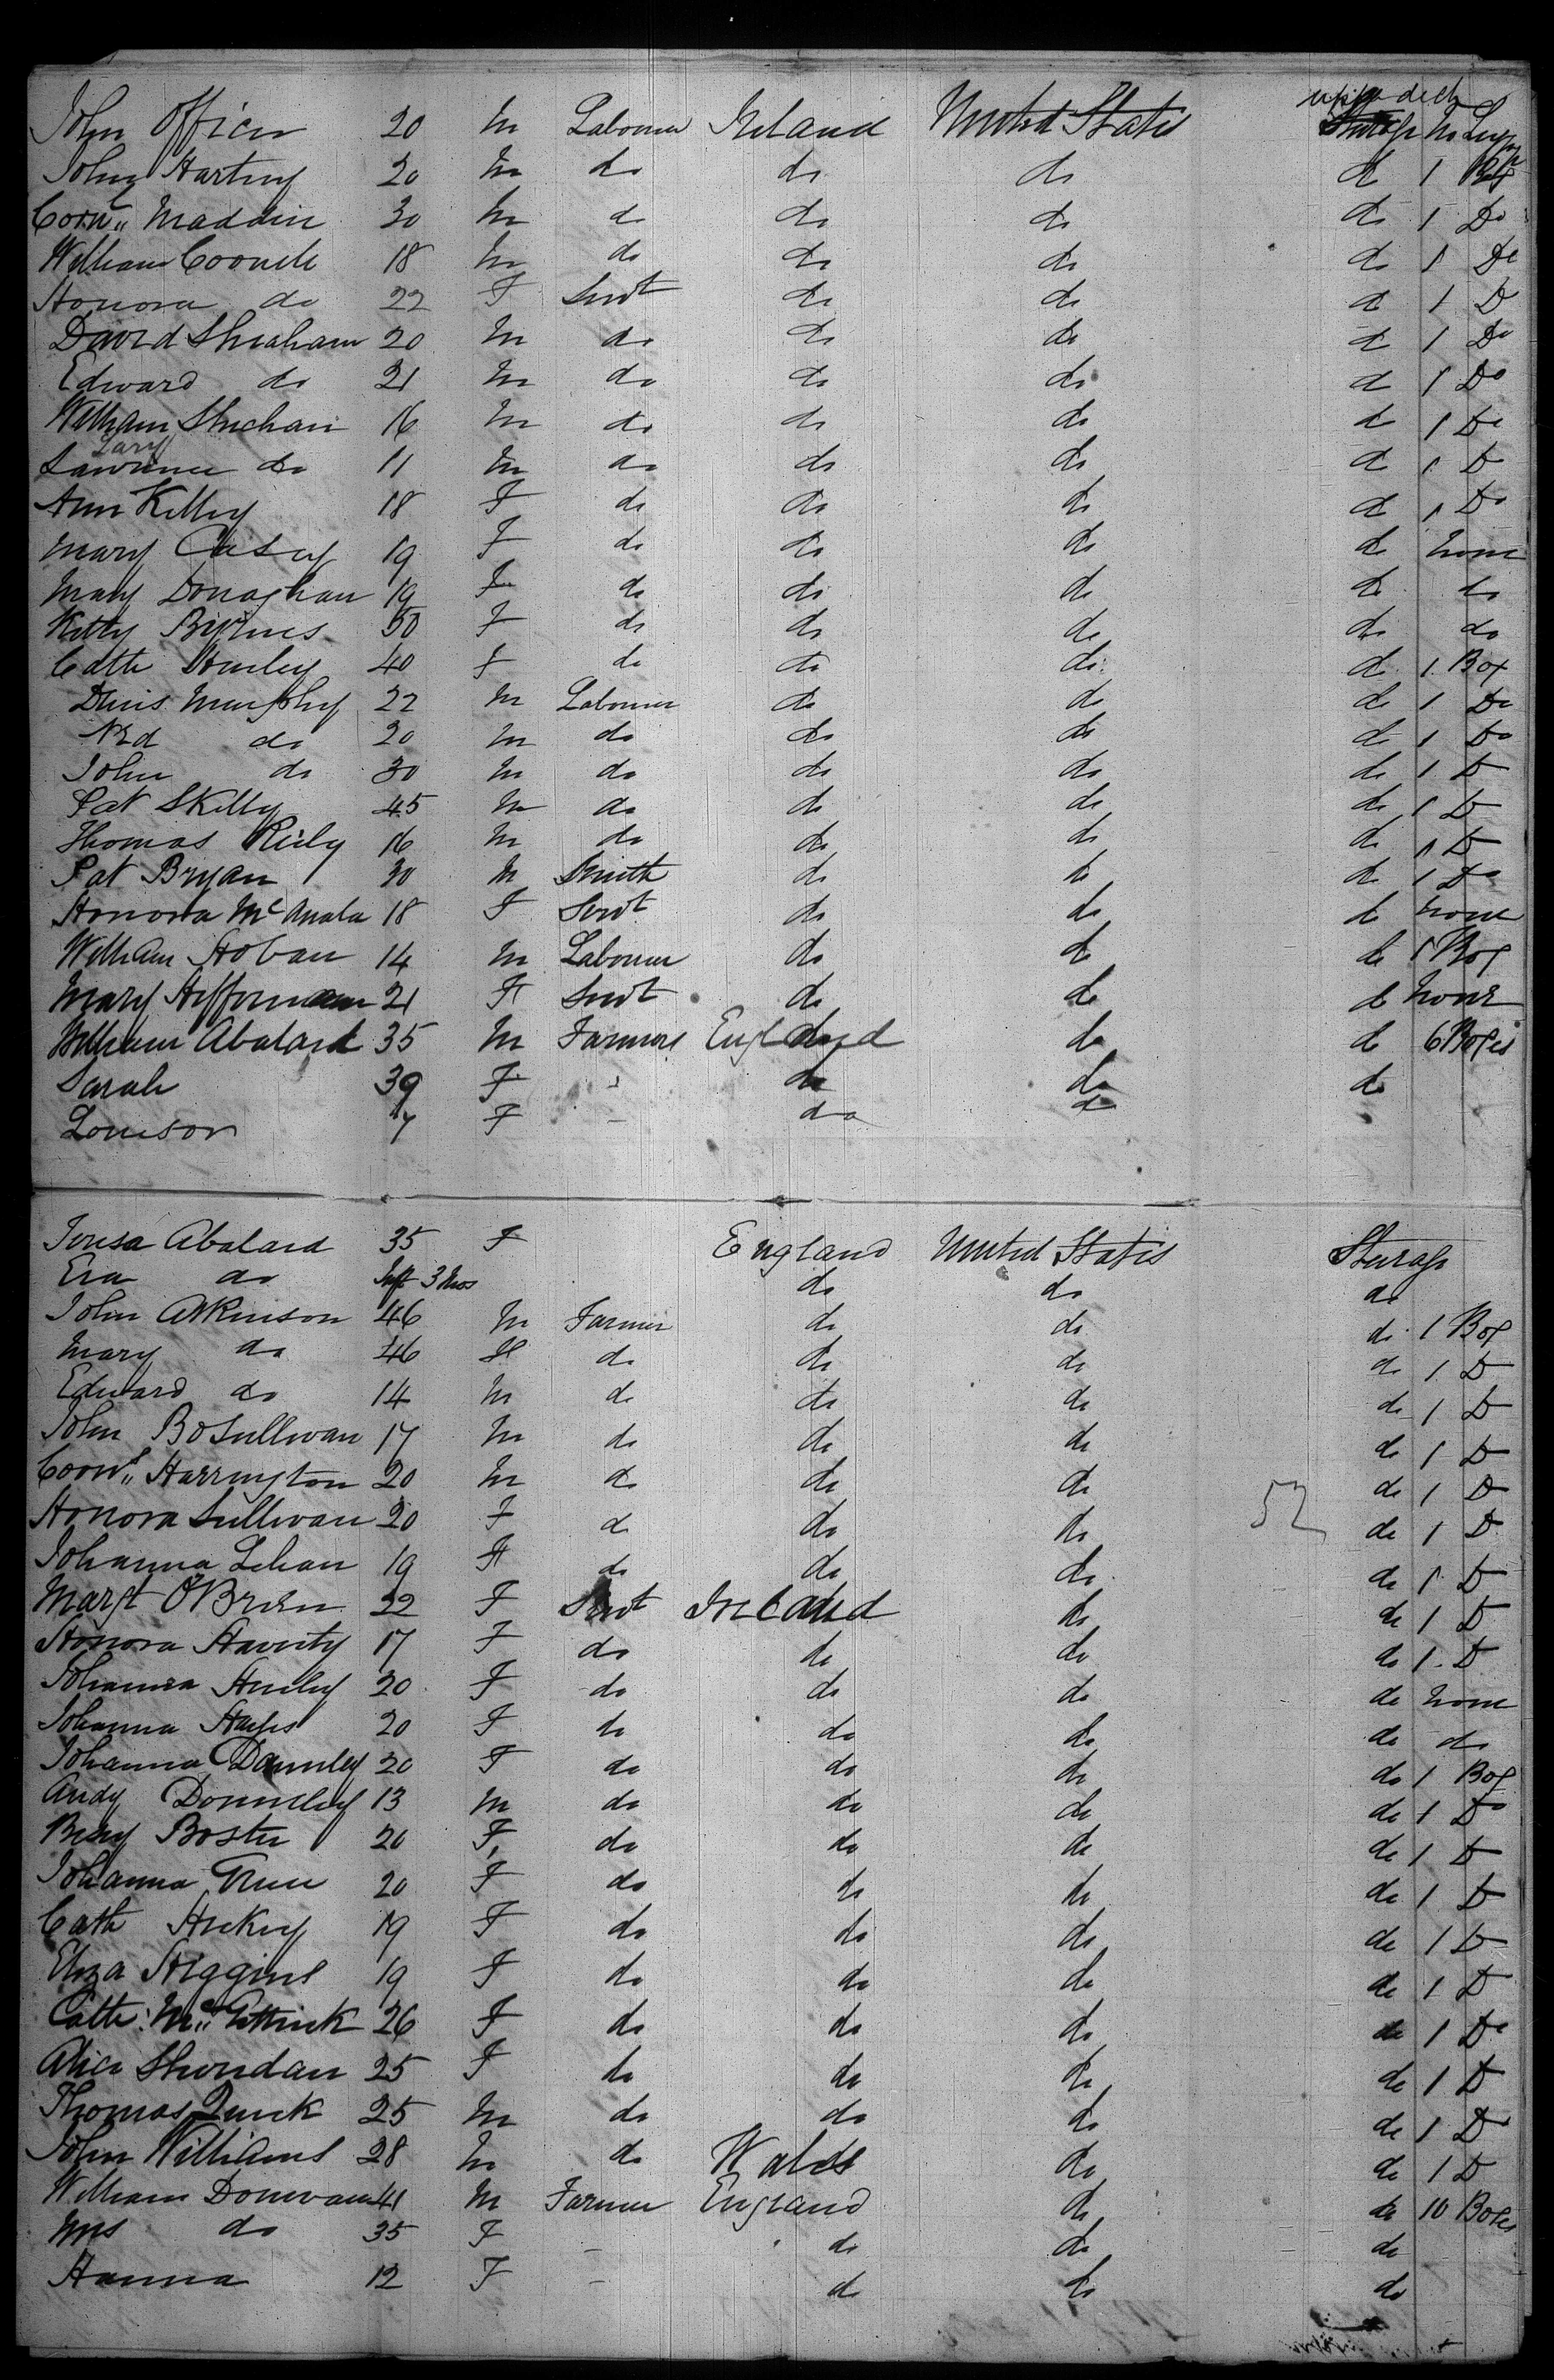 upper deck
John Officer 20 M Labourer Ireland United States Steerage No Lugg
John Hartney 20 M do do do do 1 Box
Corns Maddin 30 M do do do do 1 Do
William Coonele 18 M do do do do 1 Do
Honora do 22 F Servt do do do 1 D
David Sheaham 20 M do do do do 1 Do
Edward do 21 M do do do do 1 Do
William Shuchan 16 M do do do do 1 Do
Lary
Lawrence do 11 M do do do do 1 D
Ann Killey 18 F do do do do 1 Do
Mary Casey 19 F do do do do none
Mary Donaghan 19 F do do do do do
Kitty Birnes 50 F do do do do do
Cathe Hurley 40 F do do do do 1 Box
Denis Murphy 22 M Labourer do do do 1 Do
Ned do 20 M do do do do 1 Do
John do 30 M do do do do 1 D
Pat Skelly 45 M do do do do 1 D
Thomas Riely 16 M do do do do 1 D
Pat Bryan 30 M Smith do do do 1 Do
Honora Mc Anala 18 F Servt do do do none
William Hoban 14 M Labourer do do do 1 Box
Mary Heffornan 21 F Servt do do do none
William Abalard 35 M Farmers England do do 6 Boxes
Sarah 39 F - do do do
Louison 7 F - do do
Teresa Abalard 35 F England United States Steerage
Era do Inft 3 Mos do do do
John Atkinson 46 M Farmer do do do 1 Box
Mary do 46 F do do do do 1 D
Edward do 14 M do do do do 1 D
John BoSullivan 17 M do do do do 1 D
Corns Harrington 20 M do do do do 1 D
Honora Sullivan 20 F do do do 52 do 1 D
Johanna Lehan 19 F do do do do 1 D
Margt O'Brien 22 F Servt Ireland do do 1 D
Honora Haverty 17 F do do do do 1 D
Johanna Hurley 20 F do do do do none
Johanna Hayes 20 F do do do do do
Johanna Dannley 20 F do do do do 1 Box
Andy Donneley 13 M do do do do 1 Do
Bessy Boster 20 F do do do do 1 D
Johanna 20 F do do do do 1 D
Cath Hickey 19 F do do do do 1 D
Eliza Higgins 19 F do do do do 1 D
Cathe Mc 26 F do do do do 1 Do
Alice Sheridan 25 F do do do do 1 D
Thomas Quirk 25 M do do do do 1 D
John Williams 28 M do Wales do do 1 D
William Donovan 41 M Farmer England do do 10 Boxes
Mrs do 35 F - do do do
Hanna 12 F - do do do